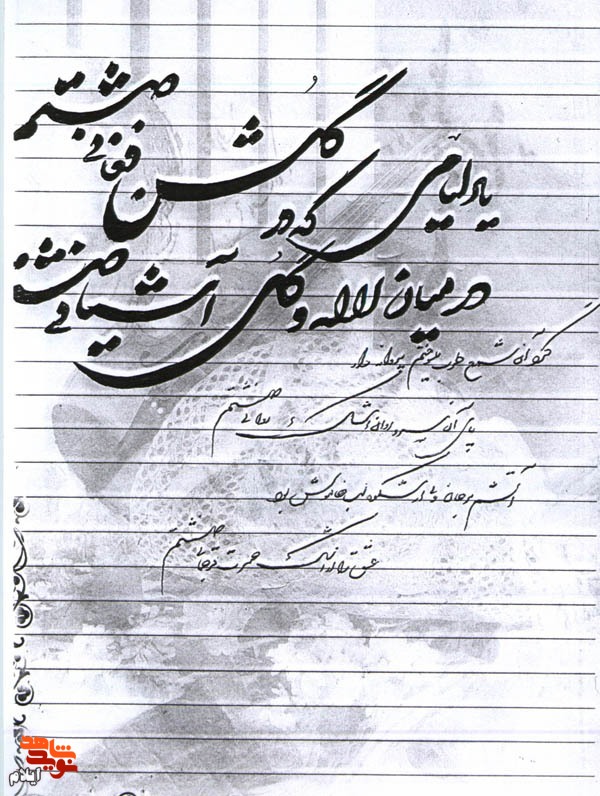 یاد ایامی که در گلشن فغانی داشتم
در میان لاله و گل آشیانی داشتم
گرد آن شمع طرب می سوختم پروانه وار
پای آن سرو روان اشک روانی داشتم
آتشم بر جان ولی از شکوه لب خاموش بود
عشق را از اشک حسرت ترجمانی داشتم
نوید شاهد
ایلام